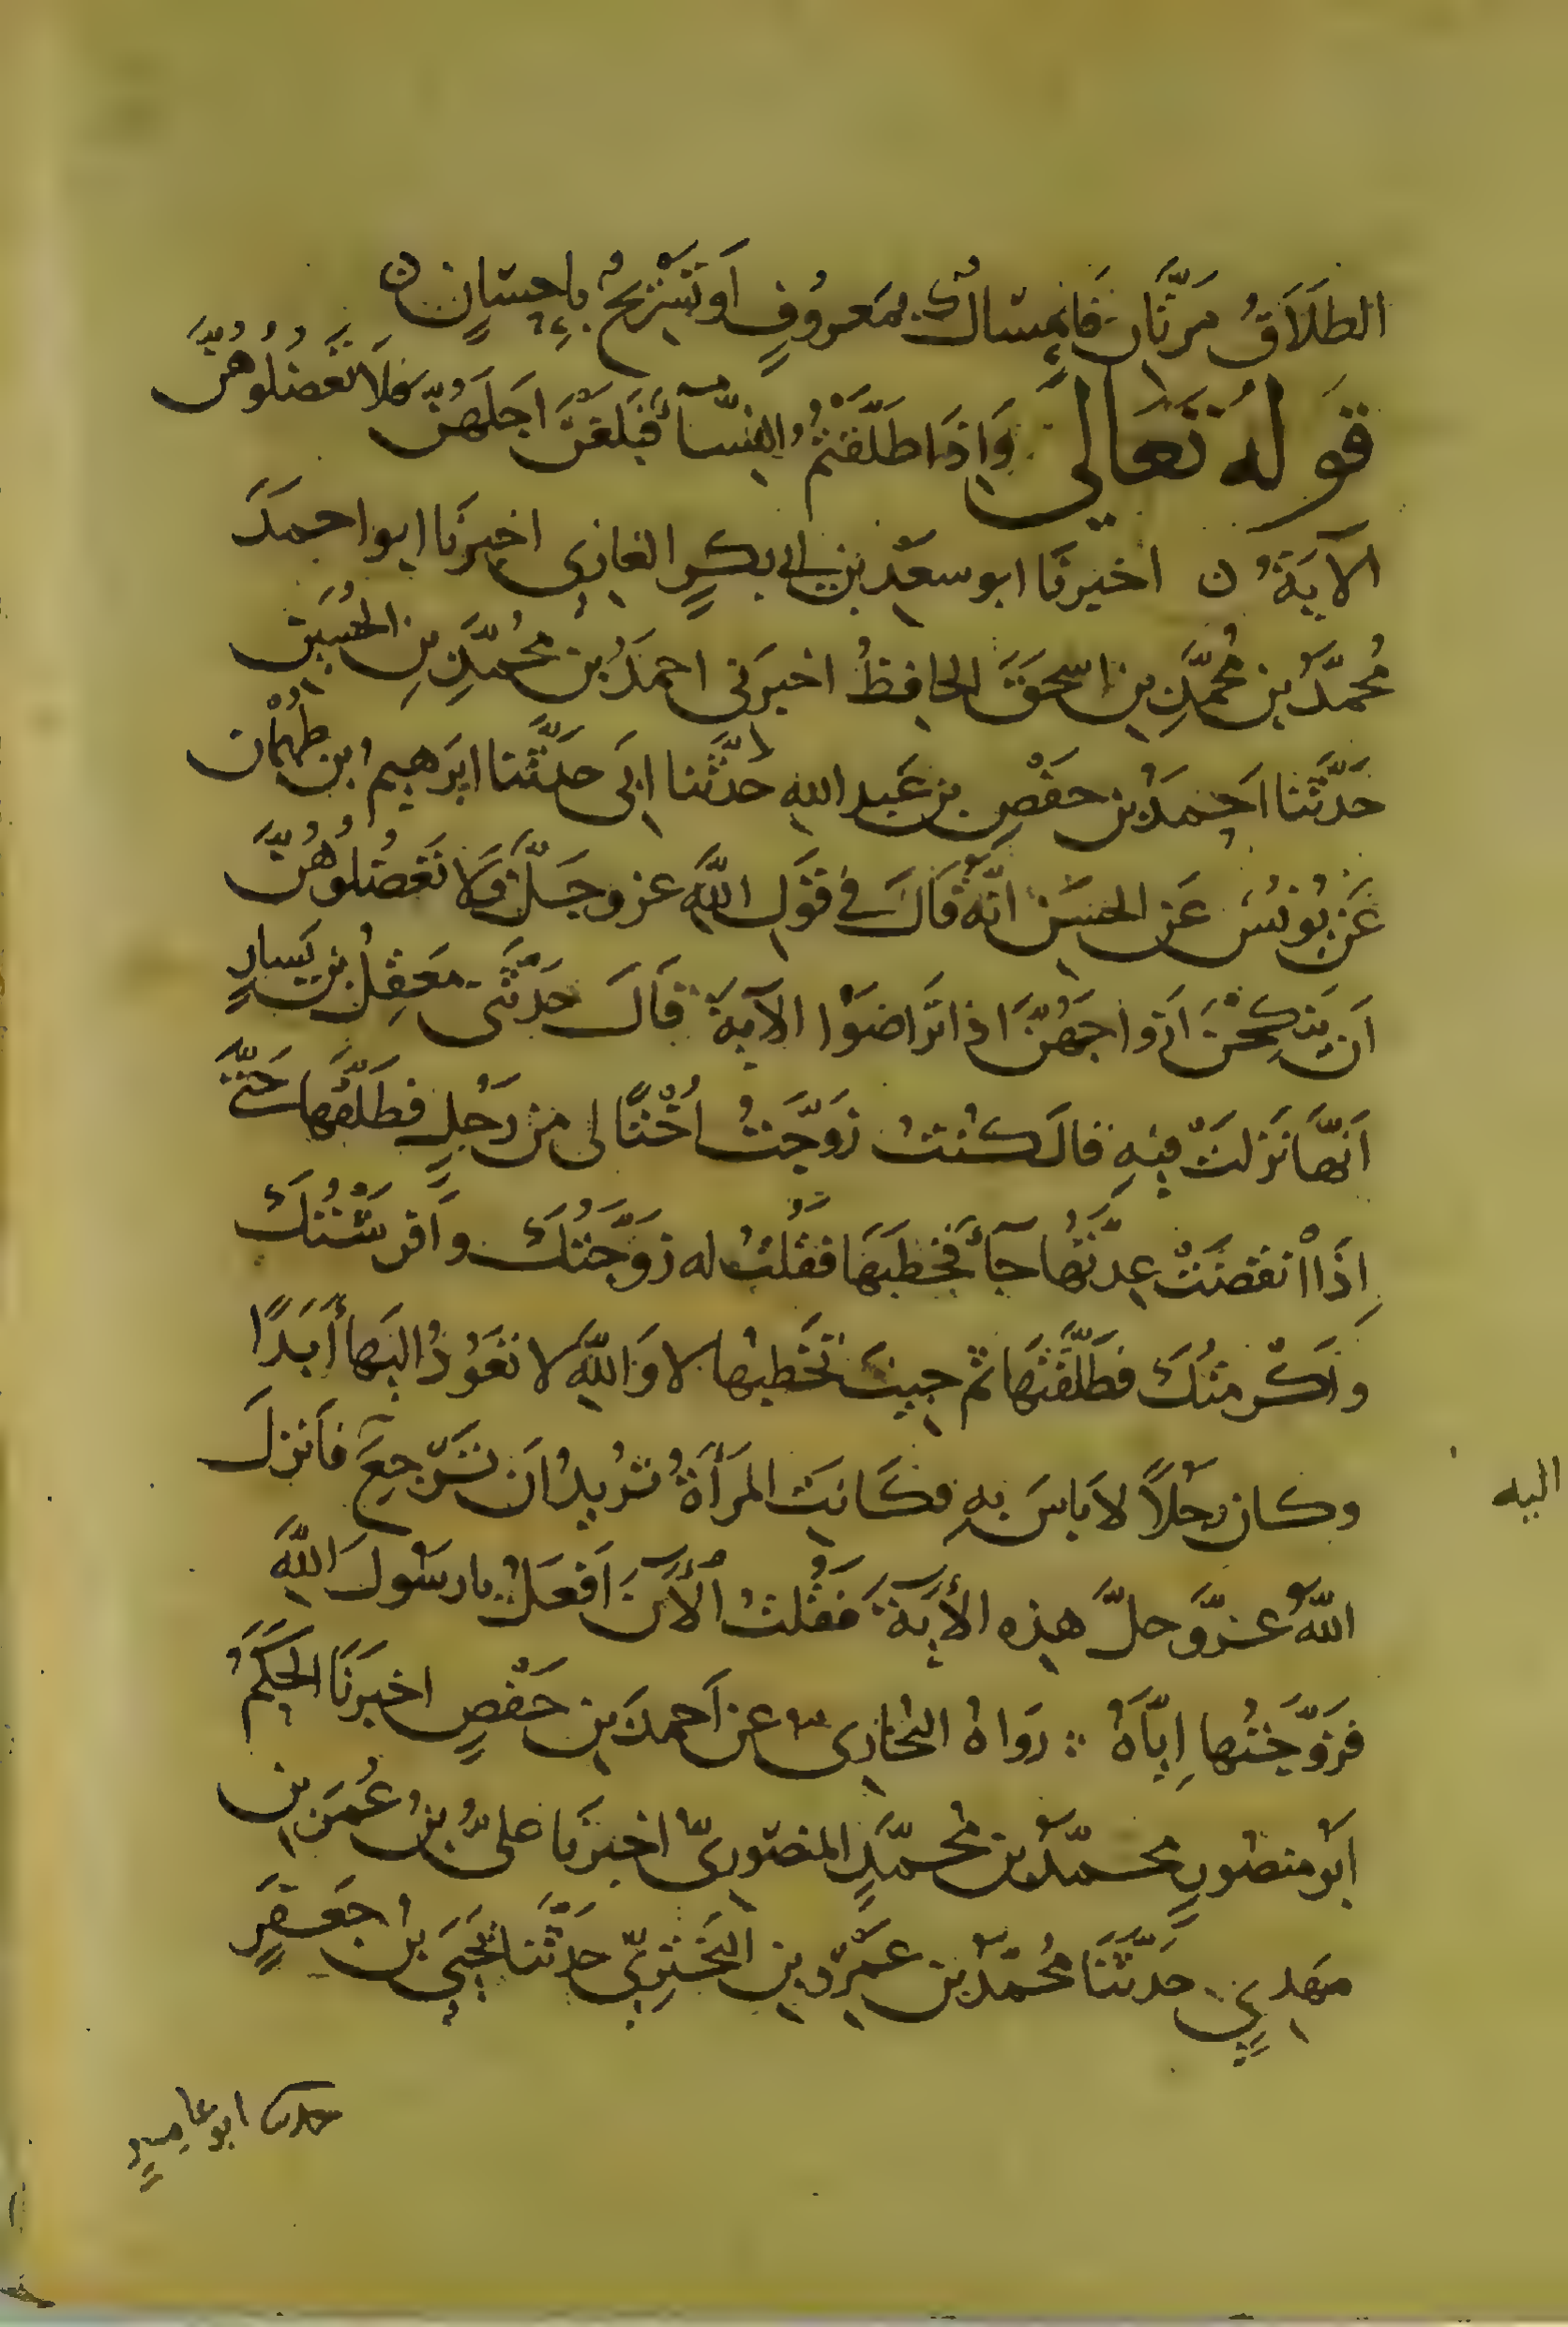 الطَلَاقُ مَرَّتَانِ فَاِمْسَاكٌ بمَعروُفٍ اَو تَسْرِيحٌ بِاِحسَانٍ ن
قوله تعَالىَ وَاِذَا طَلَّقتمُ النِسّآءَ فبَلَغنَ اجَلَهُنّ فَلَا تَعضلُوُهُنَّ
الآيَةُ ن اخبرنا ابو سعَدْ بن ابي بكرٍ الغازى اخبرَنا ابو احمدَ
مُحمدُّ بن مُحمَّدِ بن اسحقَ الحافظُ اخبرَنى احمدُ بنُ محُمَّدِ بنِ الحُسَينِ
حَدَّثنا اَحمدُ بن حَفْصِ بن عَبد اللهِ حَدَّثنا ابىَ حَدَّثنا ابرَهيم ابن طَهْمَان
عَن يُونسُ عَن الحسَن انّهُ قالَ فى قَولِ اللَّهِ عز وجَلَّ فَلَا تَعضلُوُهُنَّ
اَن يَنكِحْنَ اَزواجَهُنَّ اذا تَرَاضَوْا الآيةَ قاَلَ حَدَّثنَى مَعقِلُ بن يَسارٍ
اَنهَّا نَزلتْ فيهِ قالَ كنتُ زوَّجتُ اُخْتًا لى من رَجُلٍ فطَلَّقَها حَتَّى
اِذَا انقضَتْ عِدَّتهُا جَآءَ فخطبَهَا فقُلتُ له زَوَّجتُكَ وافرَشْتُكَ
واَكْرمتُكَ فطَلَّقتَهَا ثم جيتَ تخَطبُها لا وَاللَّهِ لا تعَوُدُ اليَها أبَدًا
وكان رَجُلاً لاَ باسَ بهِ فكاَنتِ المرَأةُ تُريدُ اَن تَرجعَ فأنزلَ
اليه
اللهُّ عَزَّوجلَّ هذِه الأيَةَ فَقُلتُ الأنَ اَفعَلُ يارسُولَ اللَّهِ
فزَوَّجَتُها اِيَّاهُ ؛ رَوَاهُ البُخارىُّ عن اَحمدَ بنِ حَفْصٍ اخبرَنَا الحَكَمُ
اَبو منصُورٍ محمدُ بن مُحمَّدٍ المنصُوريّ اخبرَنا علىُّ بنُ عُمَرَ بن
مَهدىٍ حَدَّثنَا مُحمدُ بن عمَرٍو بنِ البَختَرِيّ حَدَّثنا يَحيَى بنُ جَعفَرٍ
حدثنا ابو عامرٍ